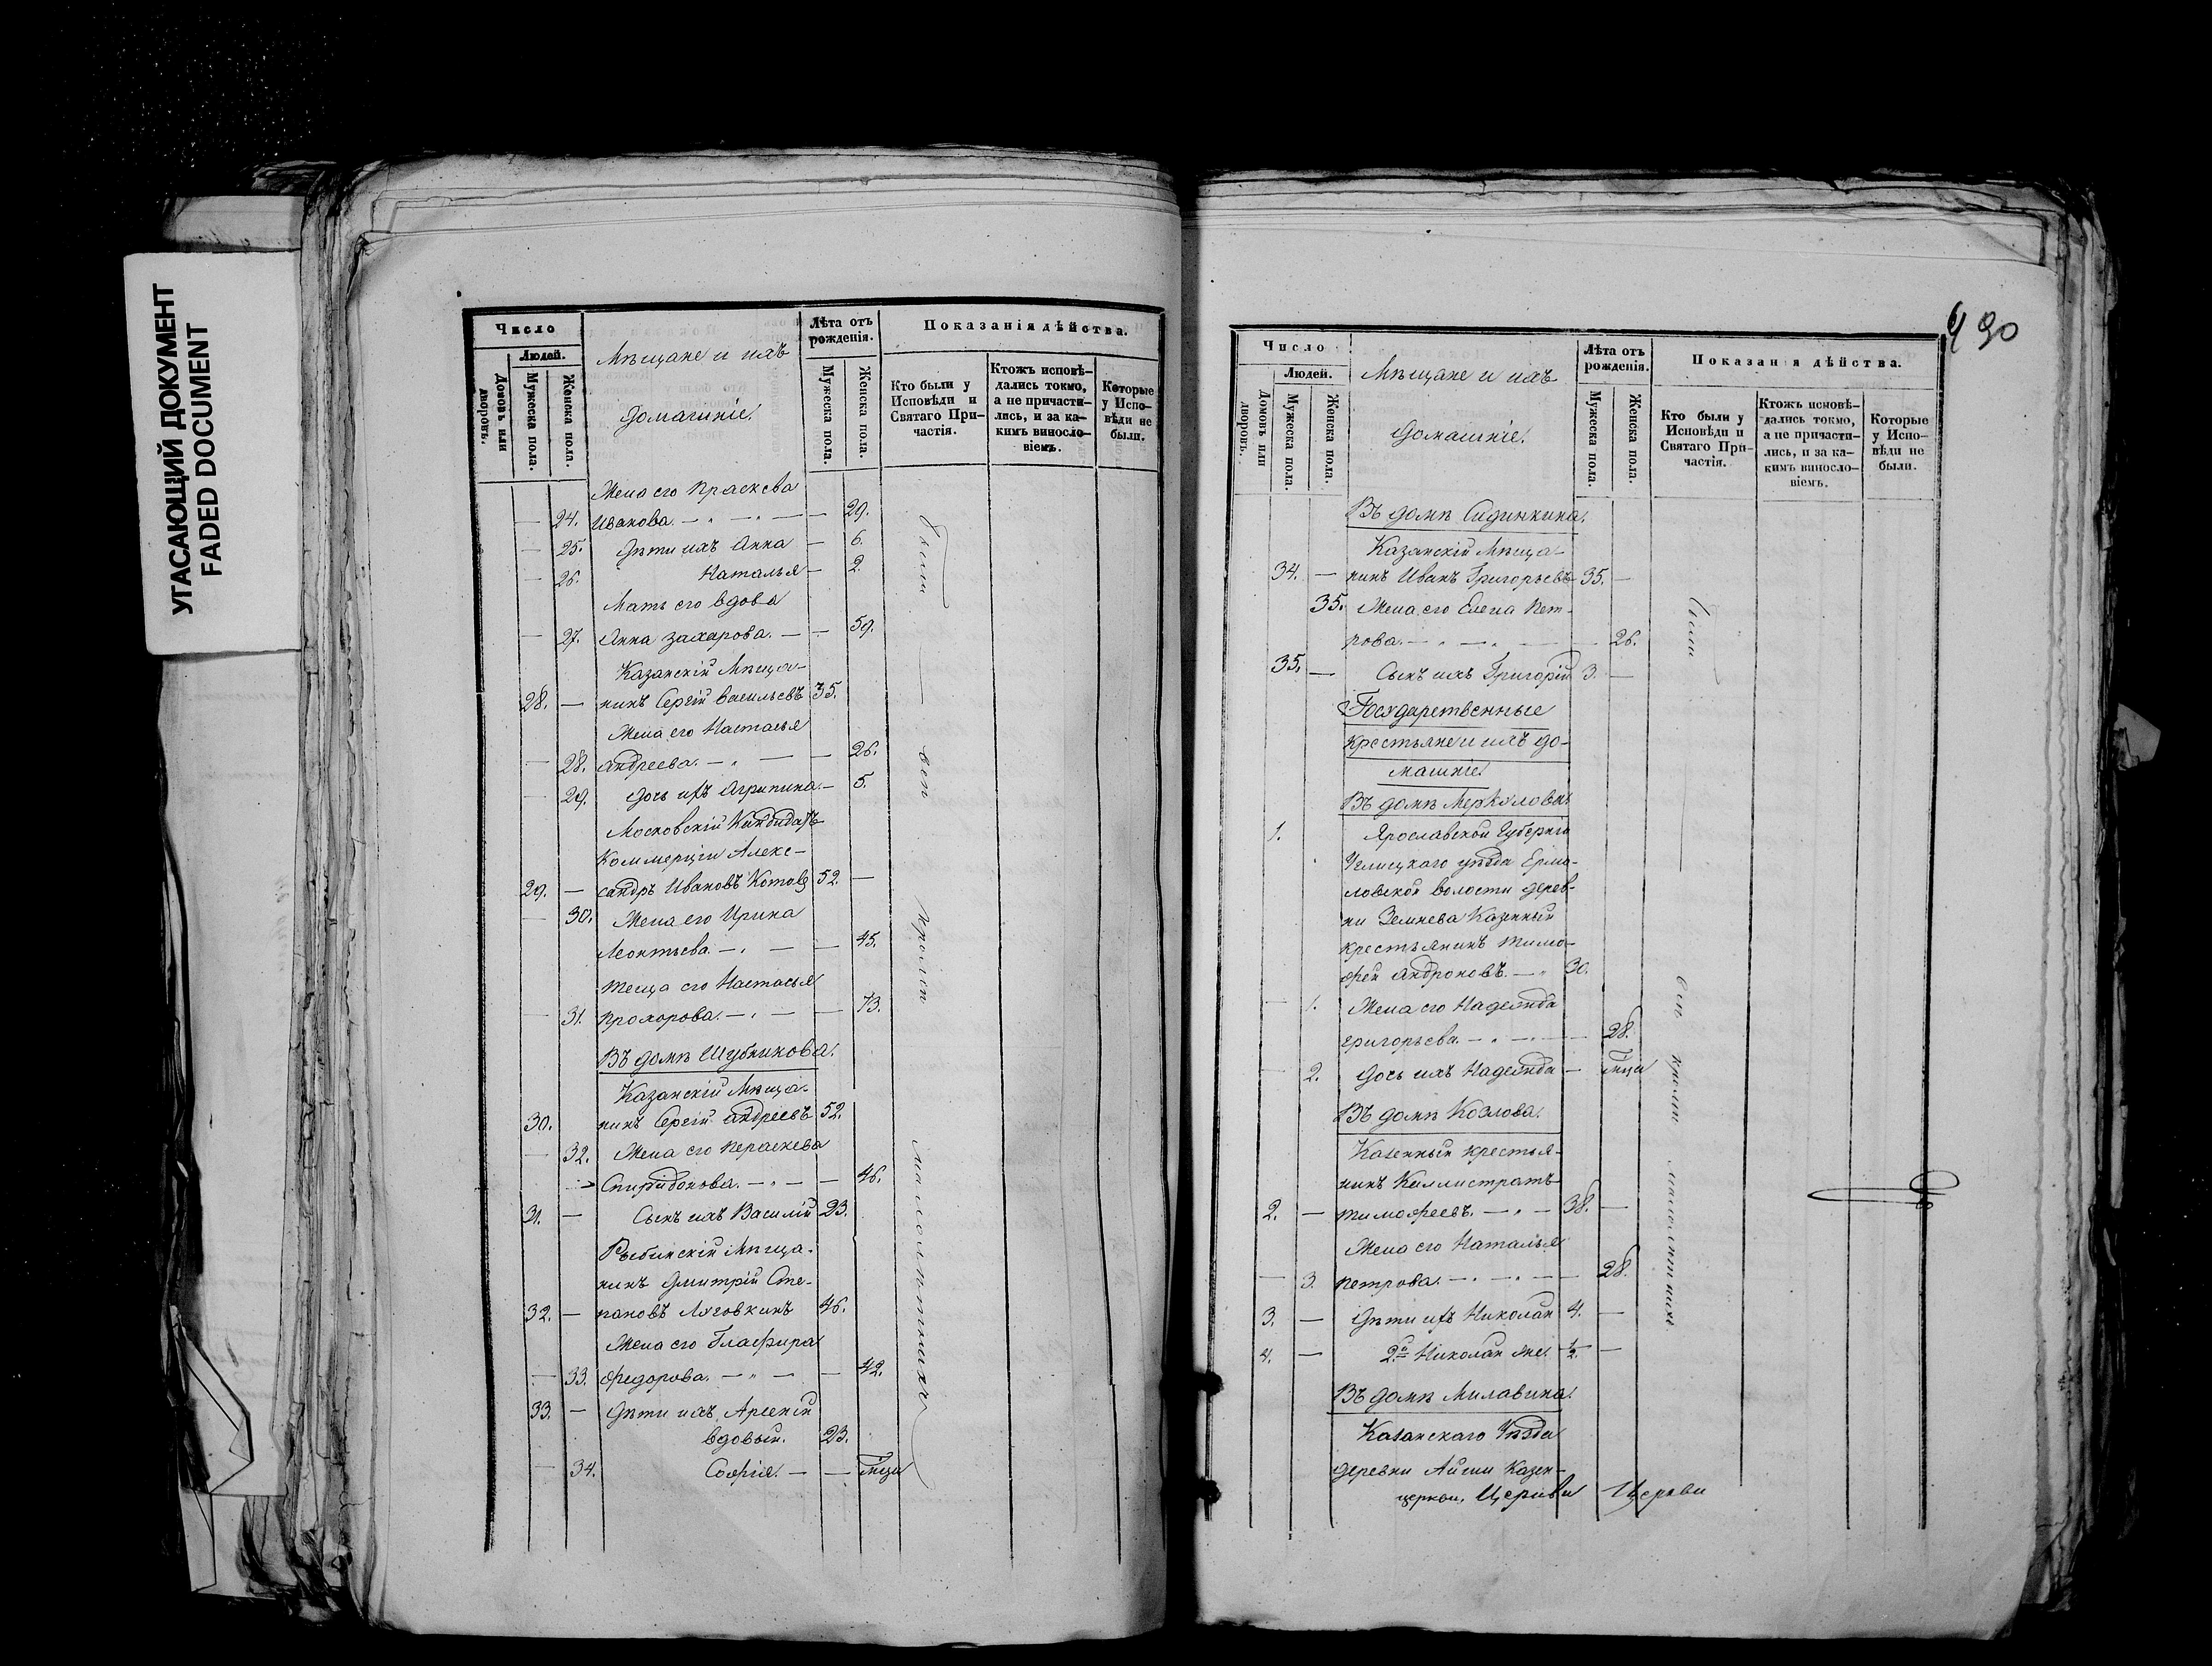 УГАСАЮЩИЙ ДОКУМЕНТ
FADED DOCUMENT
Число
Людей.
Домовъ или дворовъ.
Мужеска пола.
Женска пола.
Мѣщане и ихъ
домашніе.
Лѣта отъ рожденія.
Мужеска пола.
Женска пола.
Показанія дѣйства.
Кто были у Исповѣди и Святаго Причастія.
Ктожъ исповѣдались токмо, а не причастились, и за какимъ винословіемъ.
Которые у Исповѣди не были.
Жена его Праскева
— 24. Иванова. — — — 29.
— 25. Дѣти ихъ Анна — 6.
— 26. Наталья — 2.
Мать его вдова
— 27. Анна Захарова. — — 59.
Казанскій Мѣща-
28. — нинъ Сергій Васильевъ 35.
Жена его Настасья
— 28. Андреева. — — — 26.
— 29. Дочь ихъ Агрипина. — 5.
Московскій Кандидатъ
Коммерціи Алекс-
29. — сандръ Ивановъ Котовъ 52. —
— 30. Жена его Ирина
Леонтьева. — — — 45.
Теща его Настасья
— 31. Прохорова. — — — 73.
Въ домѣ Шубникова.
Казанскій Мѣща-
30. нинъ Сергій Андреевъ 52.
— 32. Жена его Параскева
Спиридонова. — — — 46.
31. — Сынъ ихъ Василій 23.
Рыбинскій Мѣща-
нинъ Дмитрій Сте-
32. — пановъ Луговкинъ 46.
Жена его Глафира
— 33. Федорова. — — — 42.
33. — Дѣти ихъ Арсеній
вдовый. 23.
— 34. Софія. — — 7 мѣци
были всѣ кромѣ малолѣтнихъ
490
Число
Людей.
Домовъ или дворовъ.
Мужеска пола.
Женска пола.
Мѣщане и ихъ
домашніе.
Лѣта отъ рожденія.
Мужеска пола.
Женска пола.
Показанія дѣйства.
Кто были у Исповѣди и Святаго Причастія.
Ктожъ исповѣдались токмо, а не причастились, и за какимъ винословіемъ.
Которые у Исповѣди не были.
Въ домѣ Сидинкина.
Казанскій Мѣща-
34. — нинъ Иванъ Григорьевъ 35. —
35. Жена его Елена Пет-
рова. — — — 26.
35. — Сынъ ихъ Григорій 3. —
Государственные
крестьяне и ихъ до-
машніе.
Въ домѣ Меркулова.
1. Ярославской Губерніи
Углицкаго уѣзда Ермо-
ловской волости дерев-
ни Земнева Казенный
крестьянинъ Тимо-
фей Андроновъ. — 30.
— 1. Жена его Надежда
Григорьева. — — — 28.
— 2. Дочь ихъ Надежда — мѣци
Въ домѣ Козлова.
Казенный крестья-
нинъ Каллистратъ
2. — Тимофеевъ. — — 38. —
Жена его Наталья
— 3. Петрова. — — — 28.
3. — Дѣти ихъ Николай 4. —
4. — 2й Николай же. ½. —
Въ домѣ Милавина.
Казанскаго Уѣзда
деревни Айши Казен-
церкви, Церкви Церкви
были всѣ кромѣ малолѣтнихъ